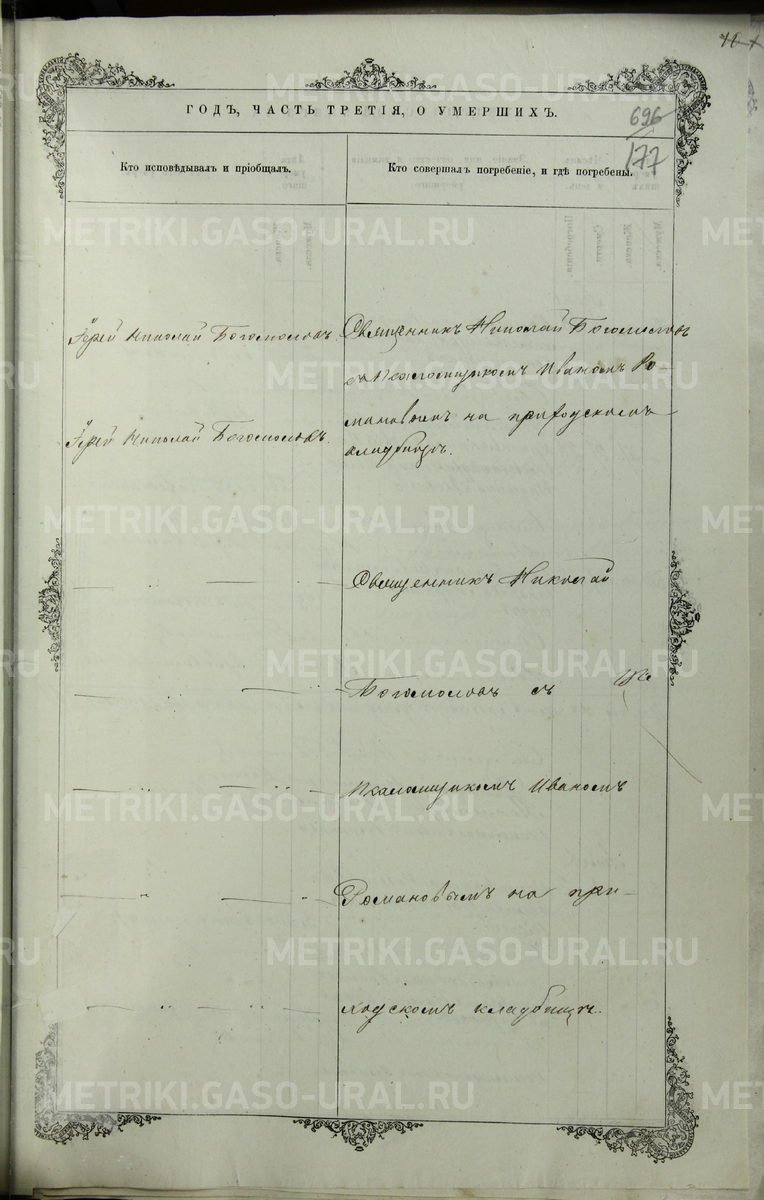 696
177
ГОДЪ, ЧАСТЬ ТРЕТІЯ, О УМЕРШИХЪ.
Кто исповѣдывалъ и пріобщалъ.
Кто совершалъ погребеніе, и гдѣ погребены.
Іерей Николай Богомоловъ
Священникъ Николай Богомоловъ
съ Псаломщикомъ Иваномъ Ро-
мановымъ на приходскомъ
кладбищѣ.
Іерей Николай Богомоловъ.
Священникъ Николай
Богомоловъ съ
Псаломщикомъ Иваномъ
Романовымъ на при-
ходскомъ кладбищѣ.
METRIKI.GASO-URAL.RU